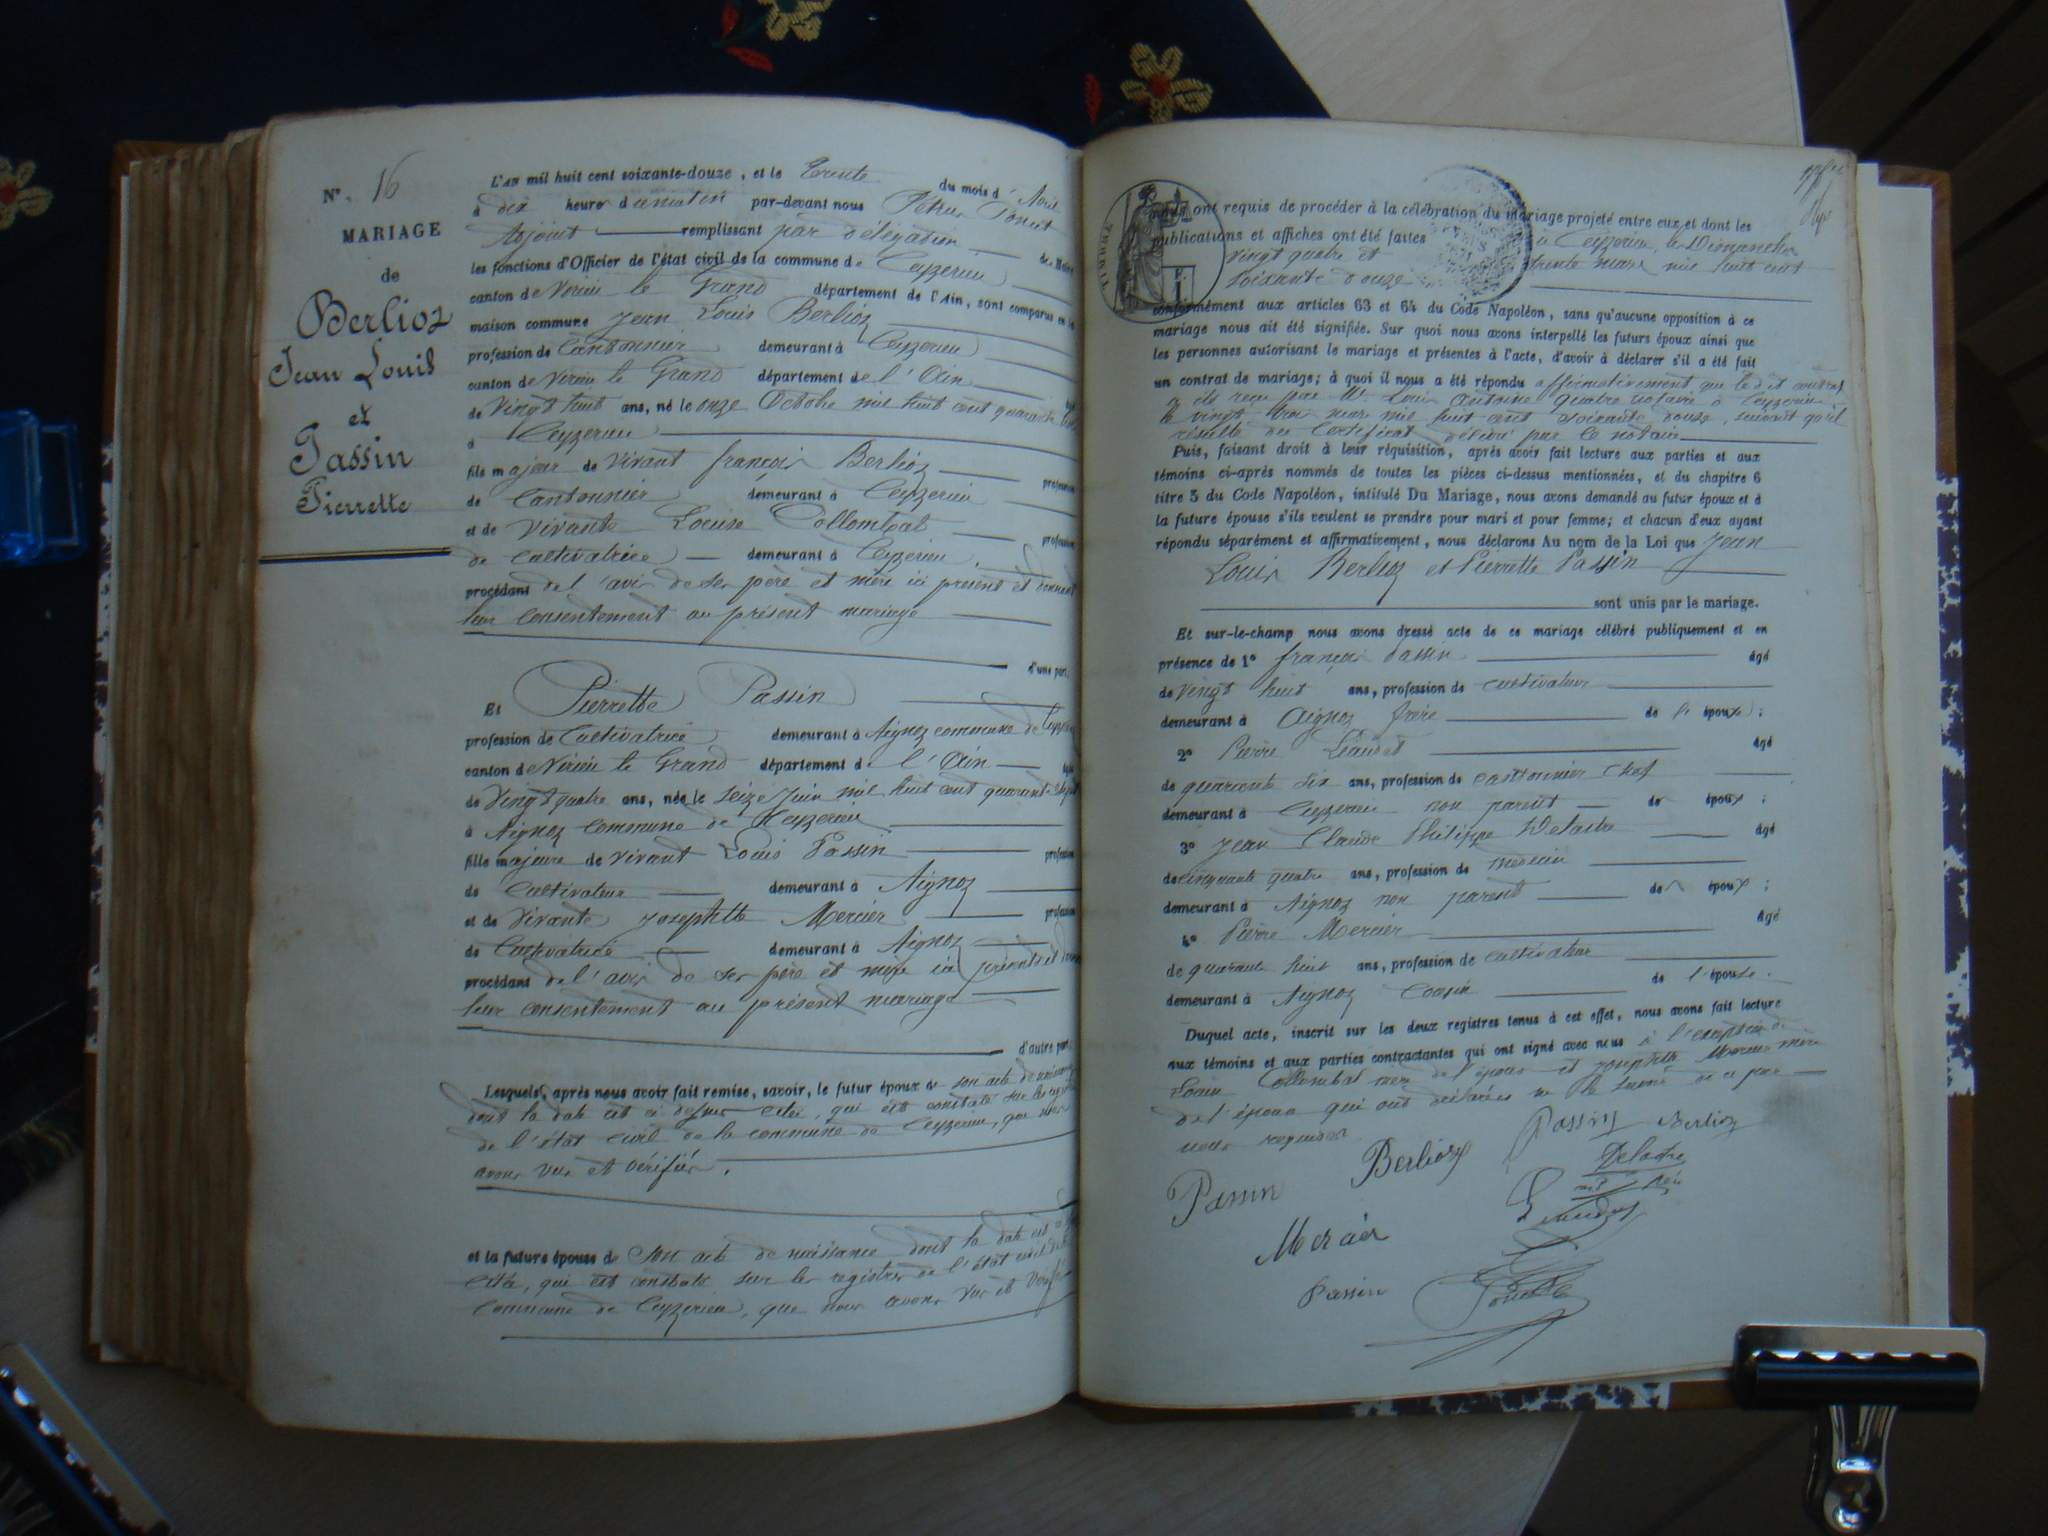 N°. 16
MARIAGE
de
Berlioz
Jean Louis
et
Passin
Pierrette
L'an mil huit cent soixante-douze, et le Trente du mois d'Avril
à dix heures du matin par-devant nous Petrus Poncet
Adjoint remplissant par délégation de Maire
les fonctions d'Officier de l'état civil de la commune de Ceyzerieu
canton de Virieu le Grand département de l'Ain, sont comparus en la
maison commune Jean Louis Berlioz
profession de Cantonnier demeurant à Ceyzerieu
canton de Virieu le Grand département de l'Ain
de Vingt huit ans, né le onze Octobre mil huit cent quarante
à Ceyzerieu
fils majeur de vivant françois Berlioz profession
de Cantonnier demeurant à Ceyzerieu
et de vivante Louise Collombat profession
de cultivatrice demeurant à Ceyzerieu
procédant de l'avis de ses père et mère ici présents et donnant
leur consentement au présent mariage
d'une part.
Et Pierrette Passin
profession de Cultivatrice demeurant à Aignoz commune de
canton de Virieu le Grand département de l'Ain
de Vingt quatre ans, née le seize Juin mil huit cent quarante sept
à Aignoz commune de Ceyzerieu
fille majeure de vivant Louis Passin profession
de Cultivateur demeurant à Aignoz
et de vivante Josephtte Mercier profession
de Cultivatrice demeurant à Aignoz
procédant de l'avis de ses père et mère ici présents et
leur consentement au présent mariage
d'autre part.
Lesquels, après nous avoir fait remise, savoir, le futur époux de son acte de naissance
dont la date est ci dessus citée, qui est constaté sur les
de l'état civil de la commune de Ceyzerieu, que nous
avons vus et vérifiés.
et la future épouse de son acte de naissance dont la date est
citée, qui est constaté sur les registres de l'état civil de
commune de Ceyzerieu, que nous avons vus et vérifiés
nous ont requis de procéder à la célébration du mariage projeté entre eux et dont les
publications et affiches ont été faites à Ceyzerieu, les Dimanches
vingt quatre et trente mars mil huit cent
soixante douze
conformément aux articles 63 et 64 du Code Napoléon, sans qu'aucune opposition à ce
mariage nous ait été signifiée. Sur quoi nous avons interpellé les futurs époux ainsi que
les personnes autorisant le mariage et présentes à l'acte, d'avoir à déclarer s'il a été fait
un contrat de mariage; à quoi il nous a été répondu affirmativement que le dit contrat
a été reçu par Me Louis Antoine notaire à Ceyzerieu
le vingt trois mars mil huit cent soixante douze, suivant qu'il
résulte du certificat délivré par le notaire
Puis, faisant droit à leur réquisition, après avoir fait lecture aux parties et aux
témoins ci-après nommés de toutes les pièces ci-dessus mentionnées, et du chapitre 6
titre 5 du Code Napoléon, intitulé Du Mariage, nous avons demandé au futur époux et à
la future épouse s'ils veulent se prendre pour mari et pour femme; et chacun d'eux ayant
répondu séparément et affirmativement, nous déclarons Au nom de la Loi que Jean
Louis Berlioz et Pierrette Passin
sont unis par le mariage.
Et sur-le-champ nous avons dressé acte de ce mariage célébré publiquement et en
présence de 1° françois Passin âgé
de vingt huit ans, profession de cultivateur
demeurant à Aignoz frère de l'épouse;
2° Pierre âgé
de quarante six ans, profession de cantonnier chef
demeurant à Ceyzerieu non parent des époux;
3° Jean Claude Philippe Delastre âgé
de cinquante quatre ans, profession de médecin
demeurant à Aignoz non parent des époux;
4° Pierre Mercier âgé
de quarante huit ans, profession de cultivateur
demeurant à Aignoz Cousin de l'épouse.
Duquel acte, inscrit sur les deux registres tenus à cet effet, nous avons fait lecture
aux témoins et aux parties contractantes qui ont signé avec nous à l'exception de
Louise Collombat mère de l'époux et Josephtte Mercier mère
de l'épouse qui ont déclarées ne le savoir de ce par
nous requises
Passin Berlioz
Berlioz
Passin
Delastre
Mercier
Passin
Poncet